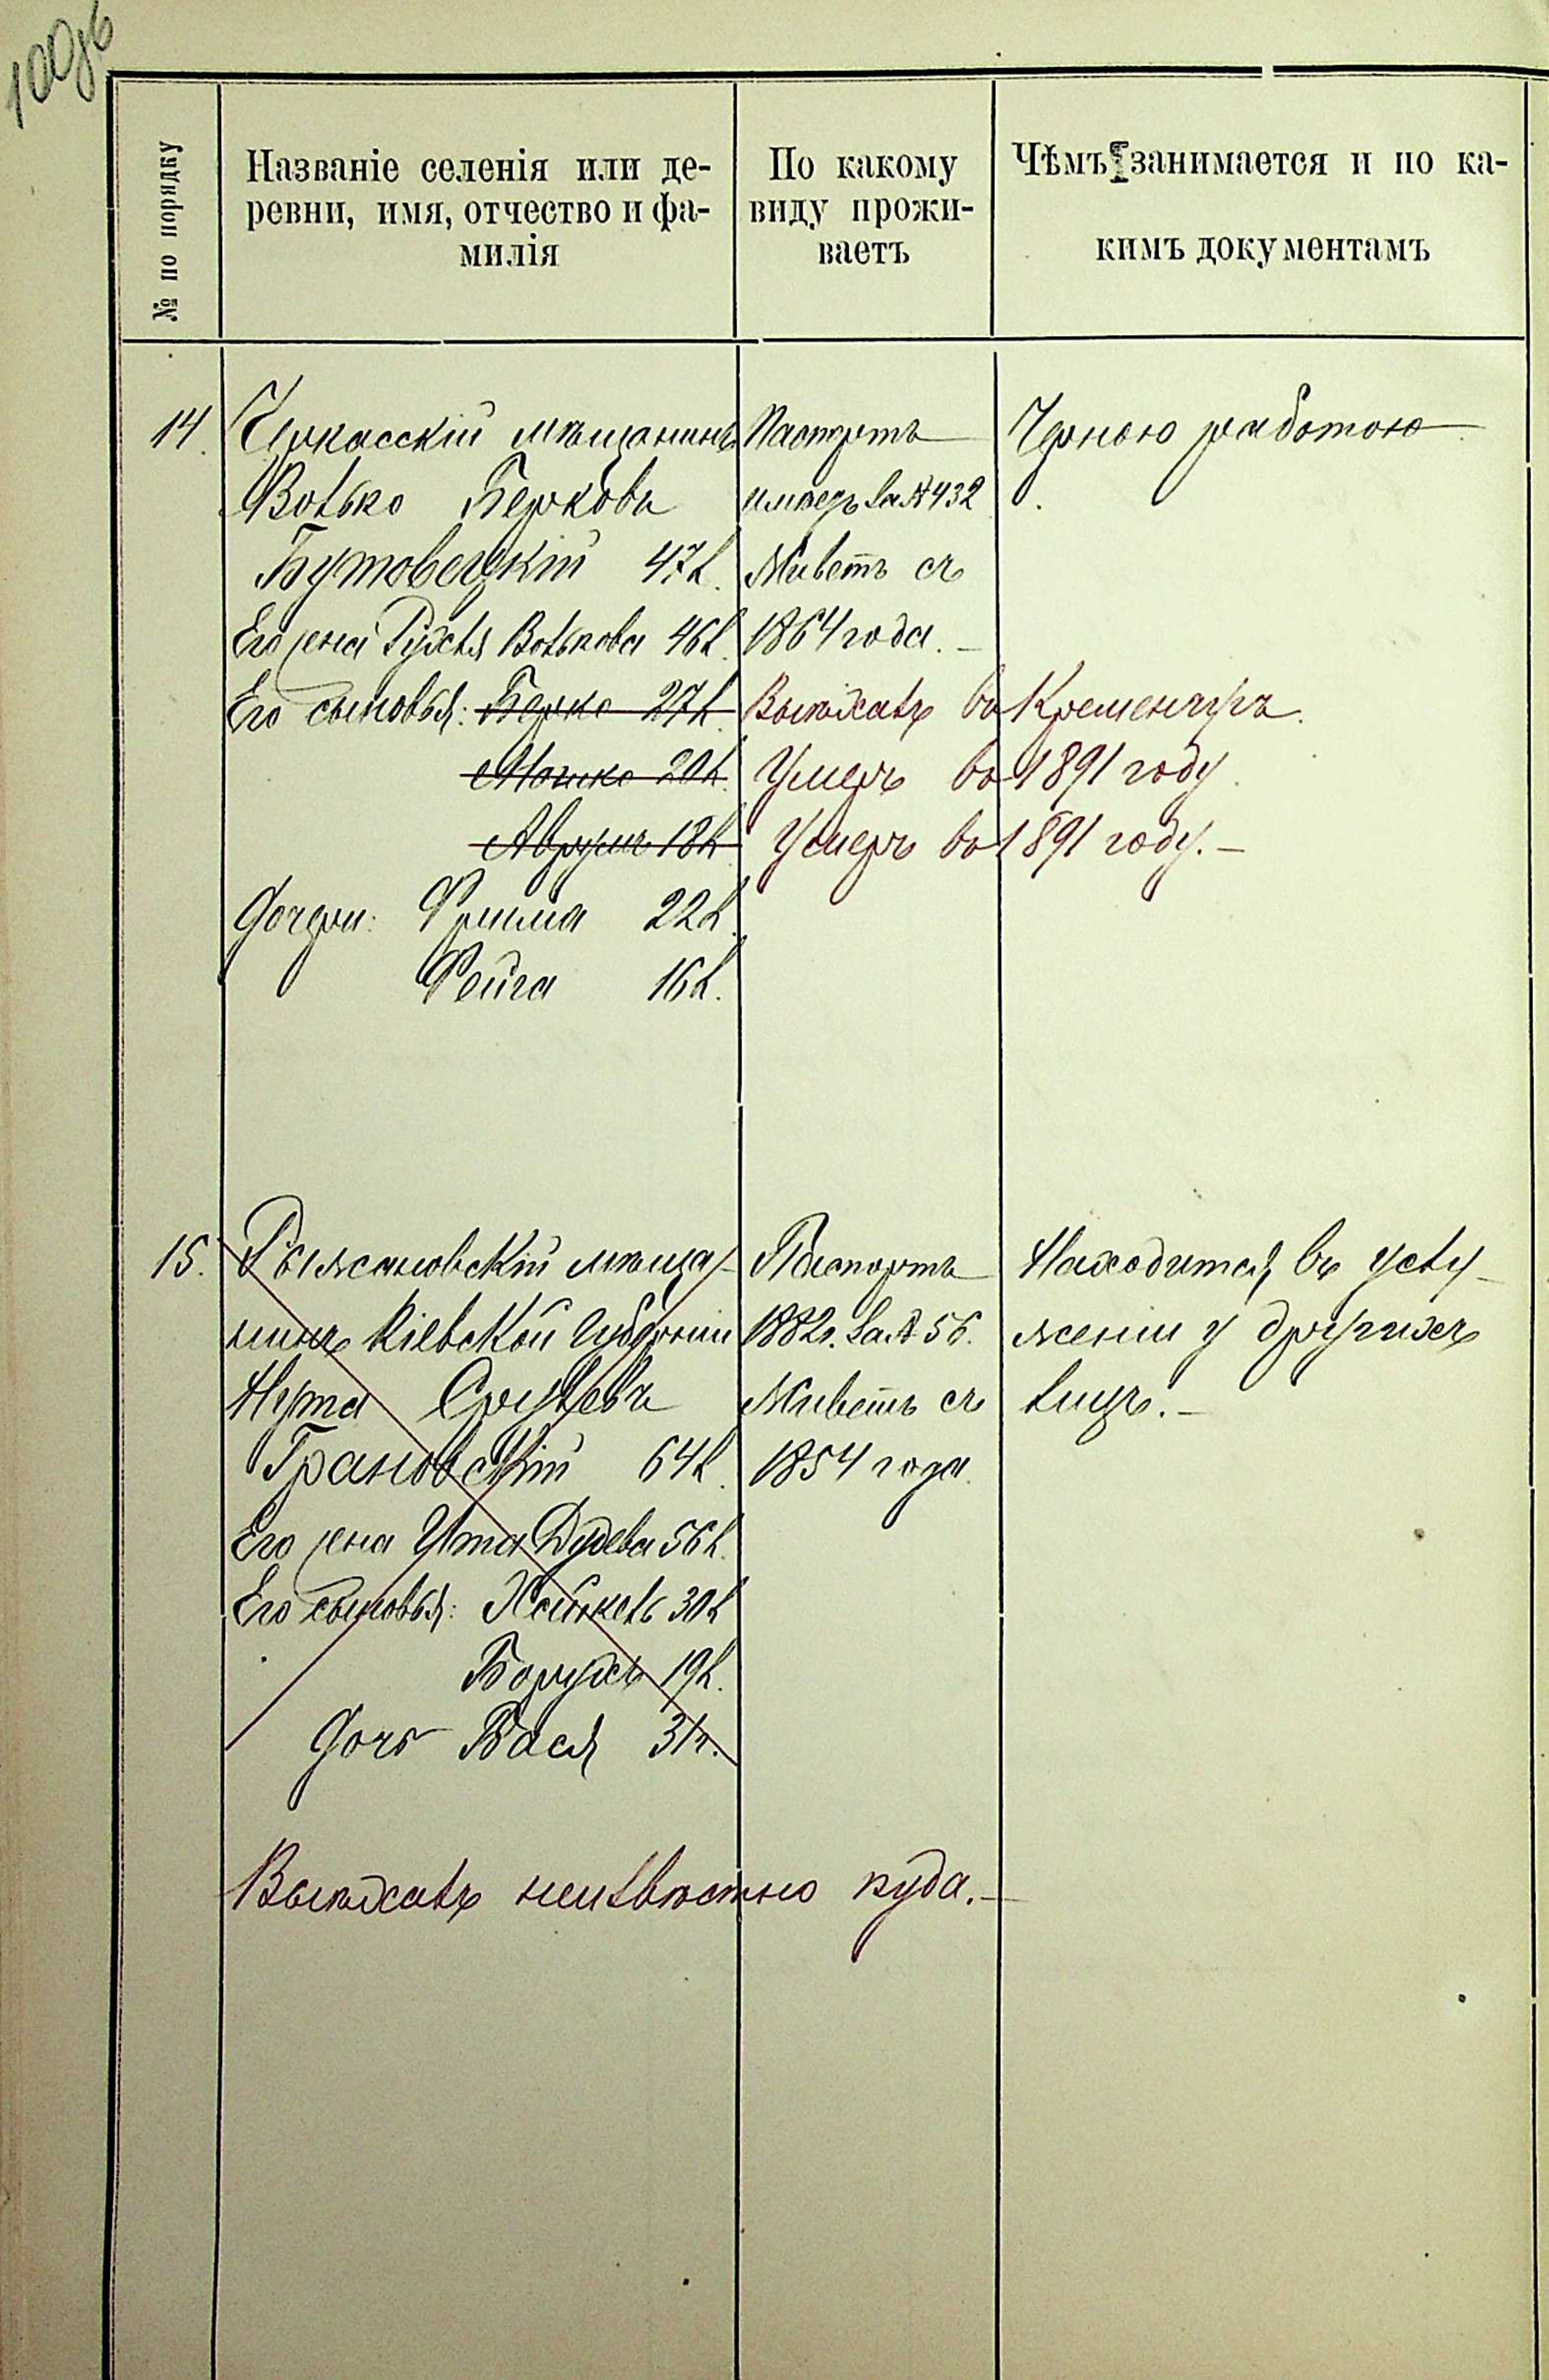 100об
№ по порядку
Названіе селенія или де-
ревни, имя, отчество и фа-
милія
По какому
виду прожи-
ваетъ
Чѣмъ занимается и по ка-
кимъ документамъ
14.
Черкасскій мѣщанинъ
Волько Берковъ
Бутовецкій 47 л.
Его жена Рухля Волькова 46 л.
Его сыновья: Берко 27 л.
Мошко 20 л.
Аврумъ 18 л.
Дочери: Фрима 22 л.
Фейга 16 л.
Паспортъ
имѣетъ за № 432
Живетъ съ
1864 года. –
Чорною работою
Выѣхалъ въ Кременчугъ.
Умеръ въ 1891 году.
Умеръ въ 1891 году. –
15.
Рыжановскій мѣща-
нинъ Кіевской Губерніи
Нута Срулевъ
Грановскій 64 л.
Его жена Ита Дудева 56 л.
Его сыновья: Хайкель 30 л.
Борухъ 19 л.
Дочь Бася 31 г.
Паспортъ
1882 г. за № 56.
Живетъ съ
1854 года.
Находится въ услу-
женіи у другихъ
лицъ. –
Выѣхалъ неизвѣстно куда. –